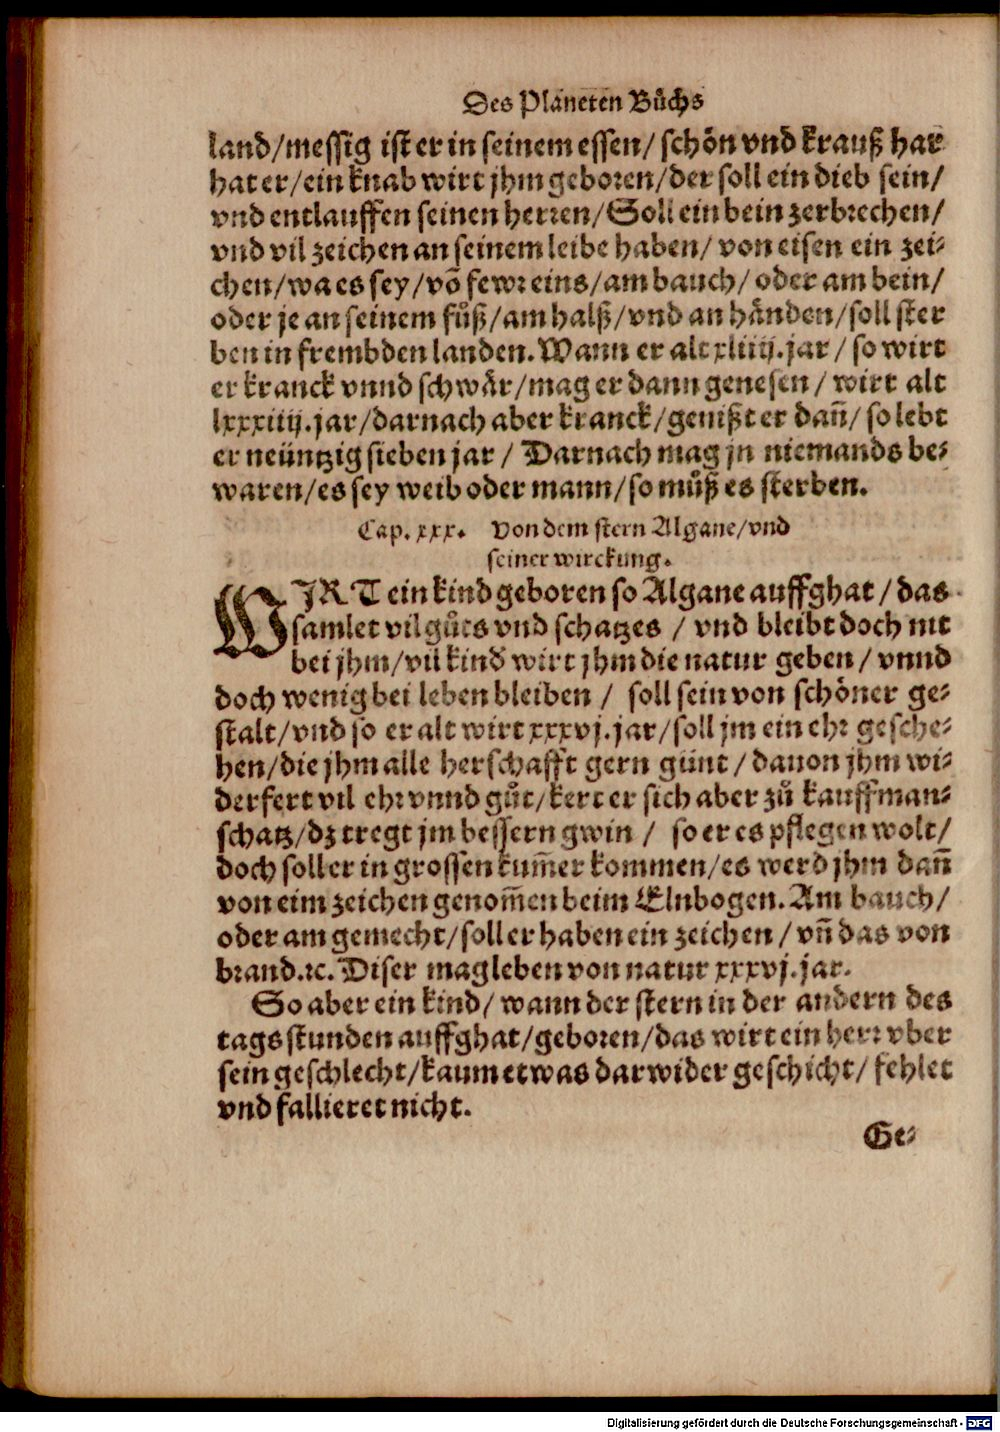 Des Planeten Bůchs
land/messig ist er in seinem essen/ schön vnd krauß har
hat er/ein knab wirt jhm geboren/der soll ein dieb sein/
vnd entlauffen seinen herren/Soll ein bein zerbrechen/
vnd vil zeichen an seinem leibe haben/ von eisen ein zei-
chen/wa es sey/võ fewr eins/am bauch/ oder am bein/
oder je an seinem fůß/am halß/vnd an händen/soll ster
ben in frembden landen. Wann er alt xliiij. jar / so wirt
er kranck vnnd schwär/mag er dann genesen / wirt alt
lxxxiiij. jar/darnach aber kranck/genißt er dañ/ so lebt
er neüntzig sieben jar / Darnach mag jn niemands be-
waren/es sey weib oder mann/so můß es sterben.
Cap. xxx. Von dem stern Algane/vnd
seiner wirckung.
WIRT ein kind geboren so Algane auffghat / das
samlet vil gůts vnd schatzes / vnd bleibt doch nit
bei jhm/vil kind wirt jhm die natur geben/ vnnd
doch wenig bei leben bleiben / soll sein von schöner ge-
stalt/vnd so er alt wirt xxxvj. jar/soll jm ein ehr gesche-
hen/die jhm alle herschafft gern günt / dauon jhm wi-
derfert vil ehr vnnd gůt/kert er sich aber zů kauffman-
schatz/dz tregt jm bessern gwin / so er es pflegen wolt/
doch soll er in grossen kum̃er kommen/es werd jhm dañ
von eim zeichen genom̃en beim Elnbogen. Am bauch/
oder am gemecht/soll er haben ein zeichen / vñ das von
brand.ꝛc. Diser mag leben von natur xxxvj. jar.
So aber ein kind/ wann der stern in der andern des
tags stunden auffghat/geboren/das wirt ein herr vber
sein geschlecht/kaum etwas darwider geschicht/ fehlet
vnd fallieret nicht.
Ge-
Digitalisierung gefördert durch die Deutsche Forschungsgemeinschaft - DFG